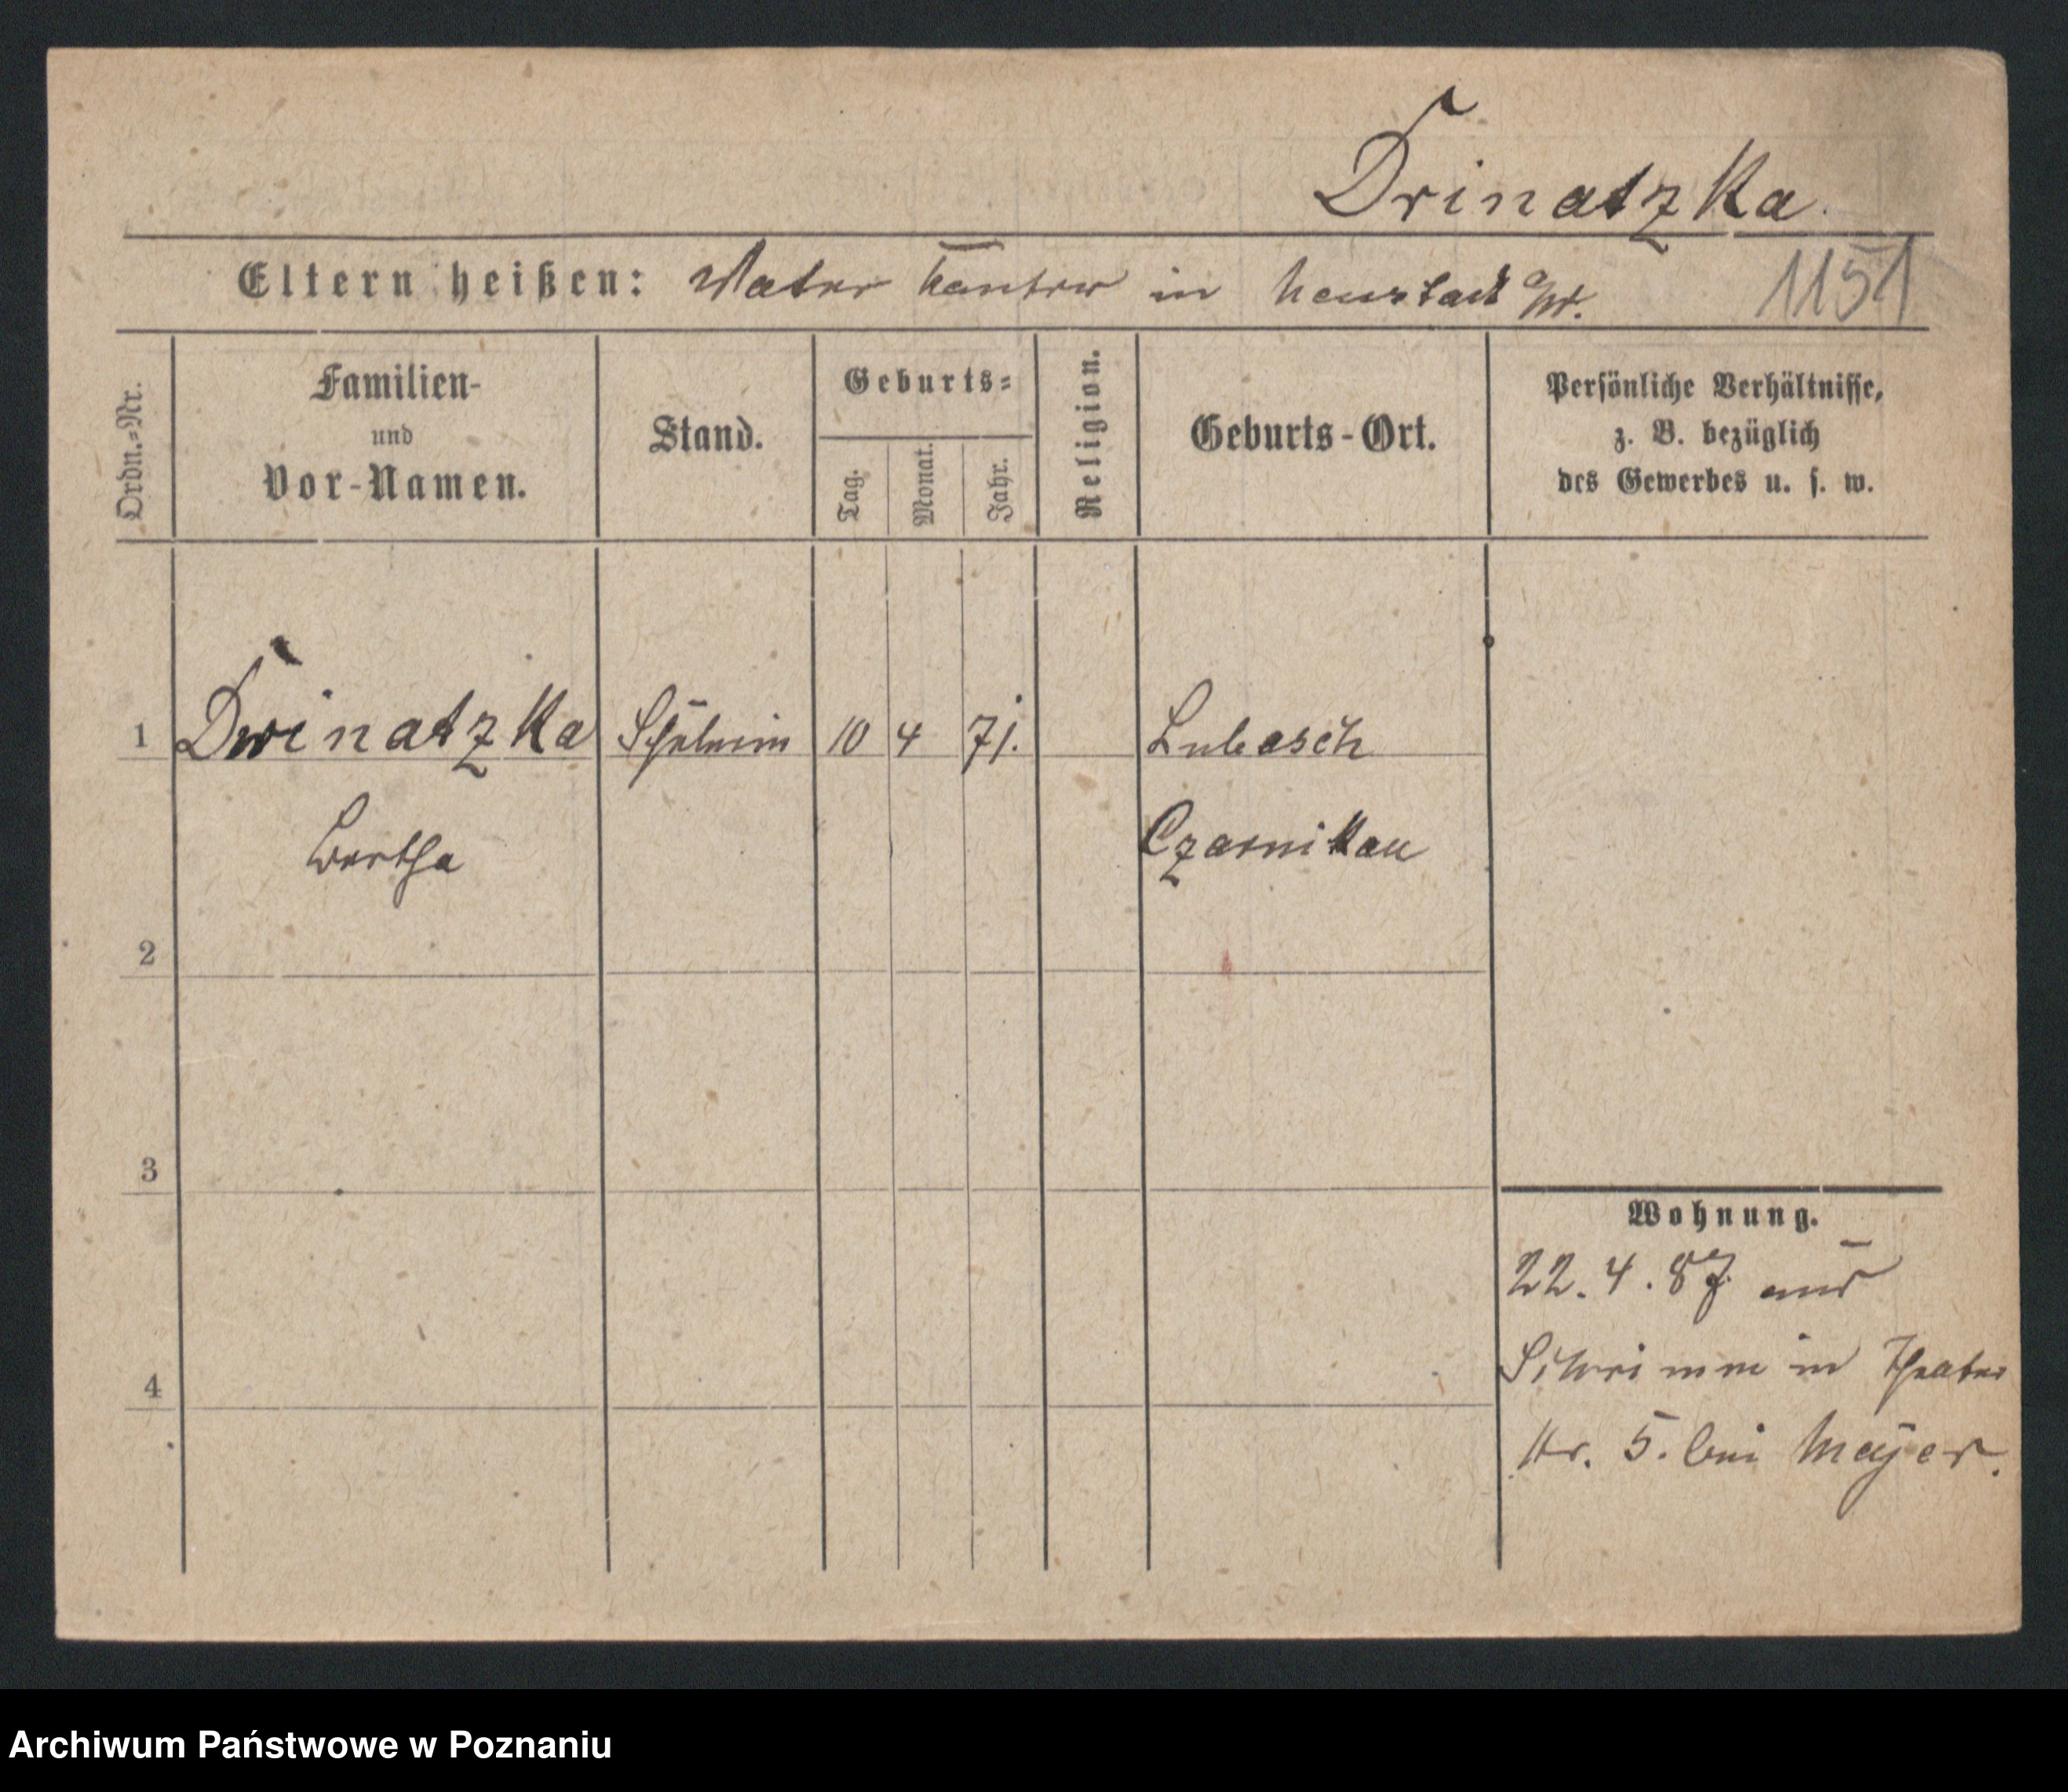 Drinatzka.
Eltern heißen: Vater Kantor in Neustadt a/W.
1151
Ordn.-Nr.
Familien-
und
Vor-Namen.
Stand.
Geburts-
Tag.
Monat.
Jahr.
Religion.
Geburts-Ort.
Persönliche Verhältnisse,
z. B. bezüglich
des Gewerbes u. s. w.
1 Drinatzka Schülerin 10 4 71. Lubasch
Bertha Czarnikau
2
3
4
Wohnung.
22.4.87 aus
Schrimm in Theater
str. 5. bei Meyer.
Archiwum Państwowe w Poznaniu